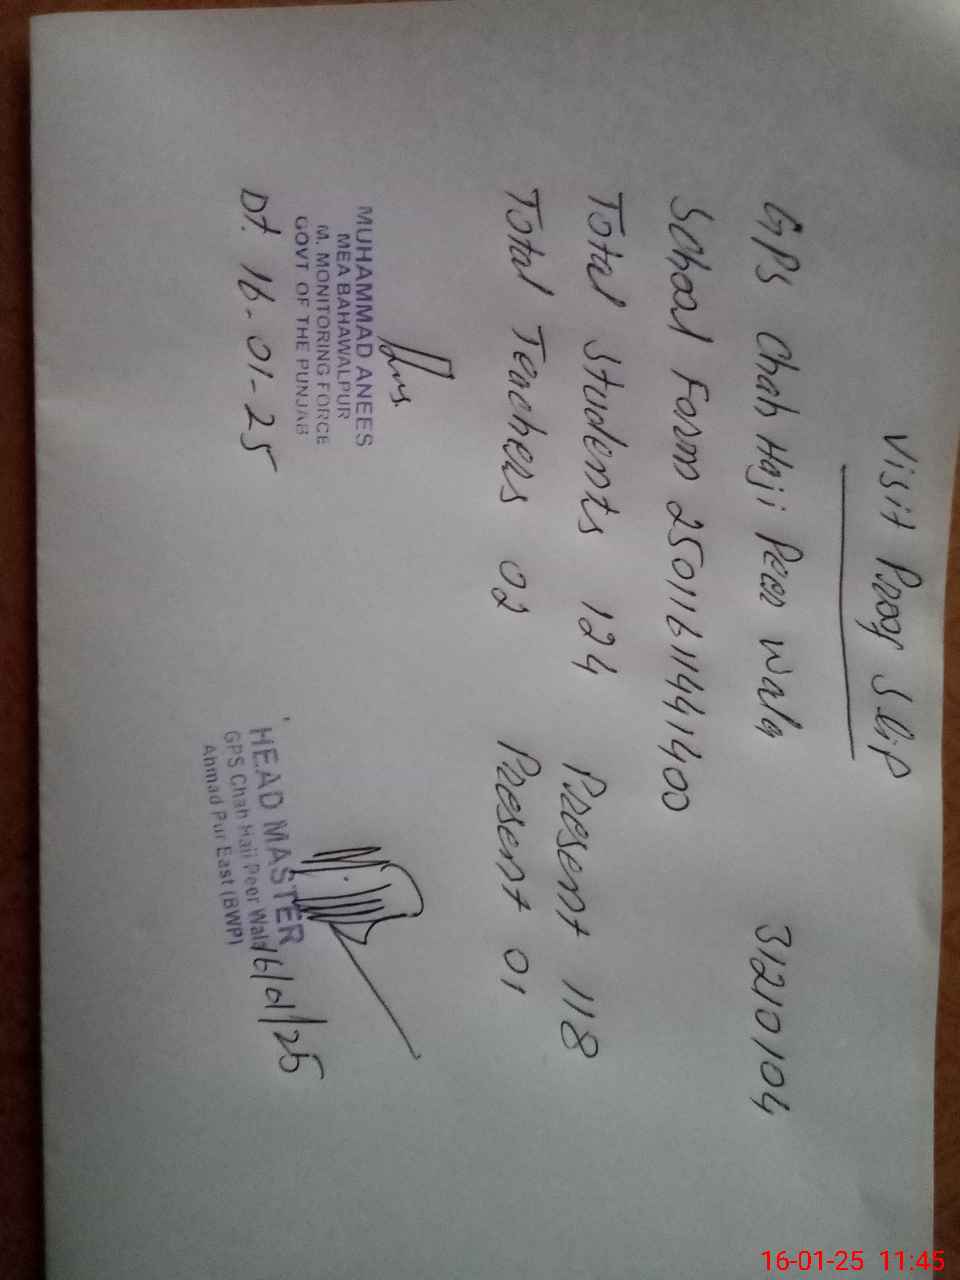 Visit Proof Slip
GPS Chah Haji Peer Wala 31210104
School Form 2501161441400
Total Students 124 Present 118
Total Teachers 02 Present 01
MUHAMMAD ANEES
MEA BAHAWALPUR
M. MONITORING FORCE
GOVT OF THE PUNJAB
Dt. 16-01-25
HEAD MASTER
GPS Chah Haji Peer Wala
Ahmad Pur East (BWP)
16/01/25
16-01-25 11:45